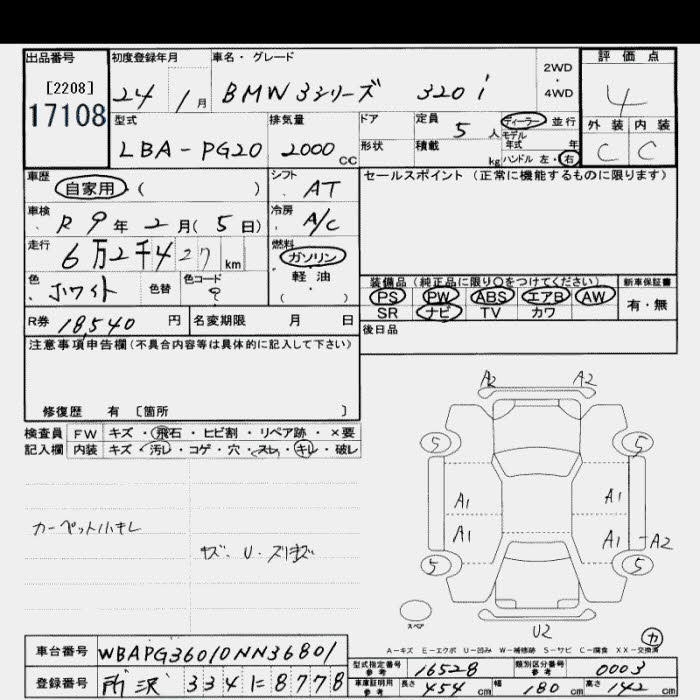 出品番号 初度登録年月 車名・グレード 評価点
[2208] 24 / 1月 BMW 3シリーズ 320i 2WD ・ 4WD 4
17108
型式 排気量 ドア 定員 5人 ディーラー 並行 外装 内装
LBA-PG20 2000 CC 形状 積載 kg モデル年式 年 C C
ハンドル 左・右
車歴 自家用・( ) シフト AT セールスポイント(正常に機能するものに限ります)
車検 R9年2月(5日) 冷房 A/C
走行 6万2千427km 燃料 ガソリン
軽油
( )
色 ホワイト 色替 色コード ? 装備品(純正品に限り〇をつけてください) 新車保証書
PS PW ABS エアB AW 有・無
SR ナビ TV カワ
R券 18,540円 名変期限 月 日 後日品
注意事項申告欄(不具合内容等は具体的に記入して下さい)
修復歴 有 〔箇所 〕
検査員 FW キズ・飛石・ヒビ割・リペア跡・×要
記入欄 内装 キズ・汚レ・コゲ・穴・スレ・キレ・破レ
A2 A2
5 5
A1 A1
A1 A1 A2
5 5
カーペット小キレ
キズ、U・スリキズ
スペア
U2
カ
A-キズ E-エクボ U-凹み W-補修跡 S-サビ C-腐食 XX-交換済
車台番号 WBAPG36010NN36801
型式指定番号参考 16528 類別区分番号参考 0003
登録番号 所沢 334 に 8778
車庫証明用参考 長さ 454cm 幅 180cm 高さ 142cm